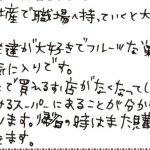 産で職場へ持っていくと大
達が大好きでフルーツな
気に入りです。
で買れるす店がなくなってし
るスーパーによることが分か
います。帰省の時はまた買
ます。